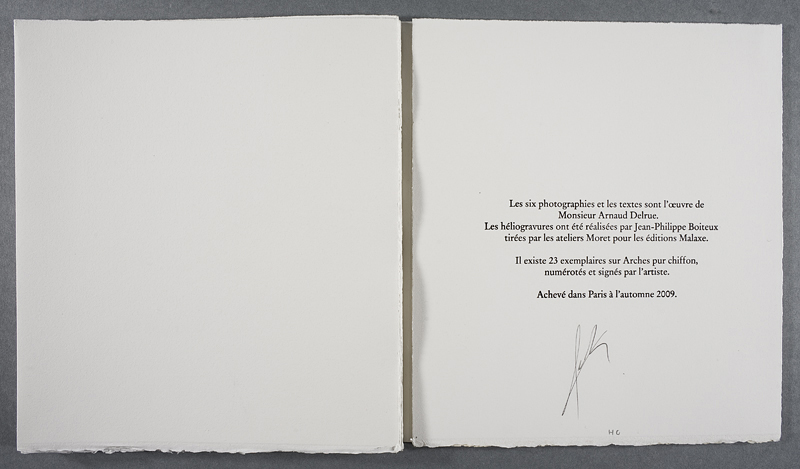 Les six photographies et les textes sont l'œuvre de
Monsieur Arnaud Delrue.
Les héliogravures ont été réalisées par Jean-Philippe Boiteux
tirées par les ateliers Moret pour les éditions Malaxe.
Il existe 23 exemplaires sur Arches pur chiffon,
numérotés et signés par l'artiste.
Achevé dans Paris à l'automne 2009.
HC